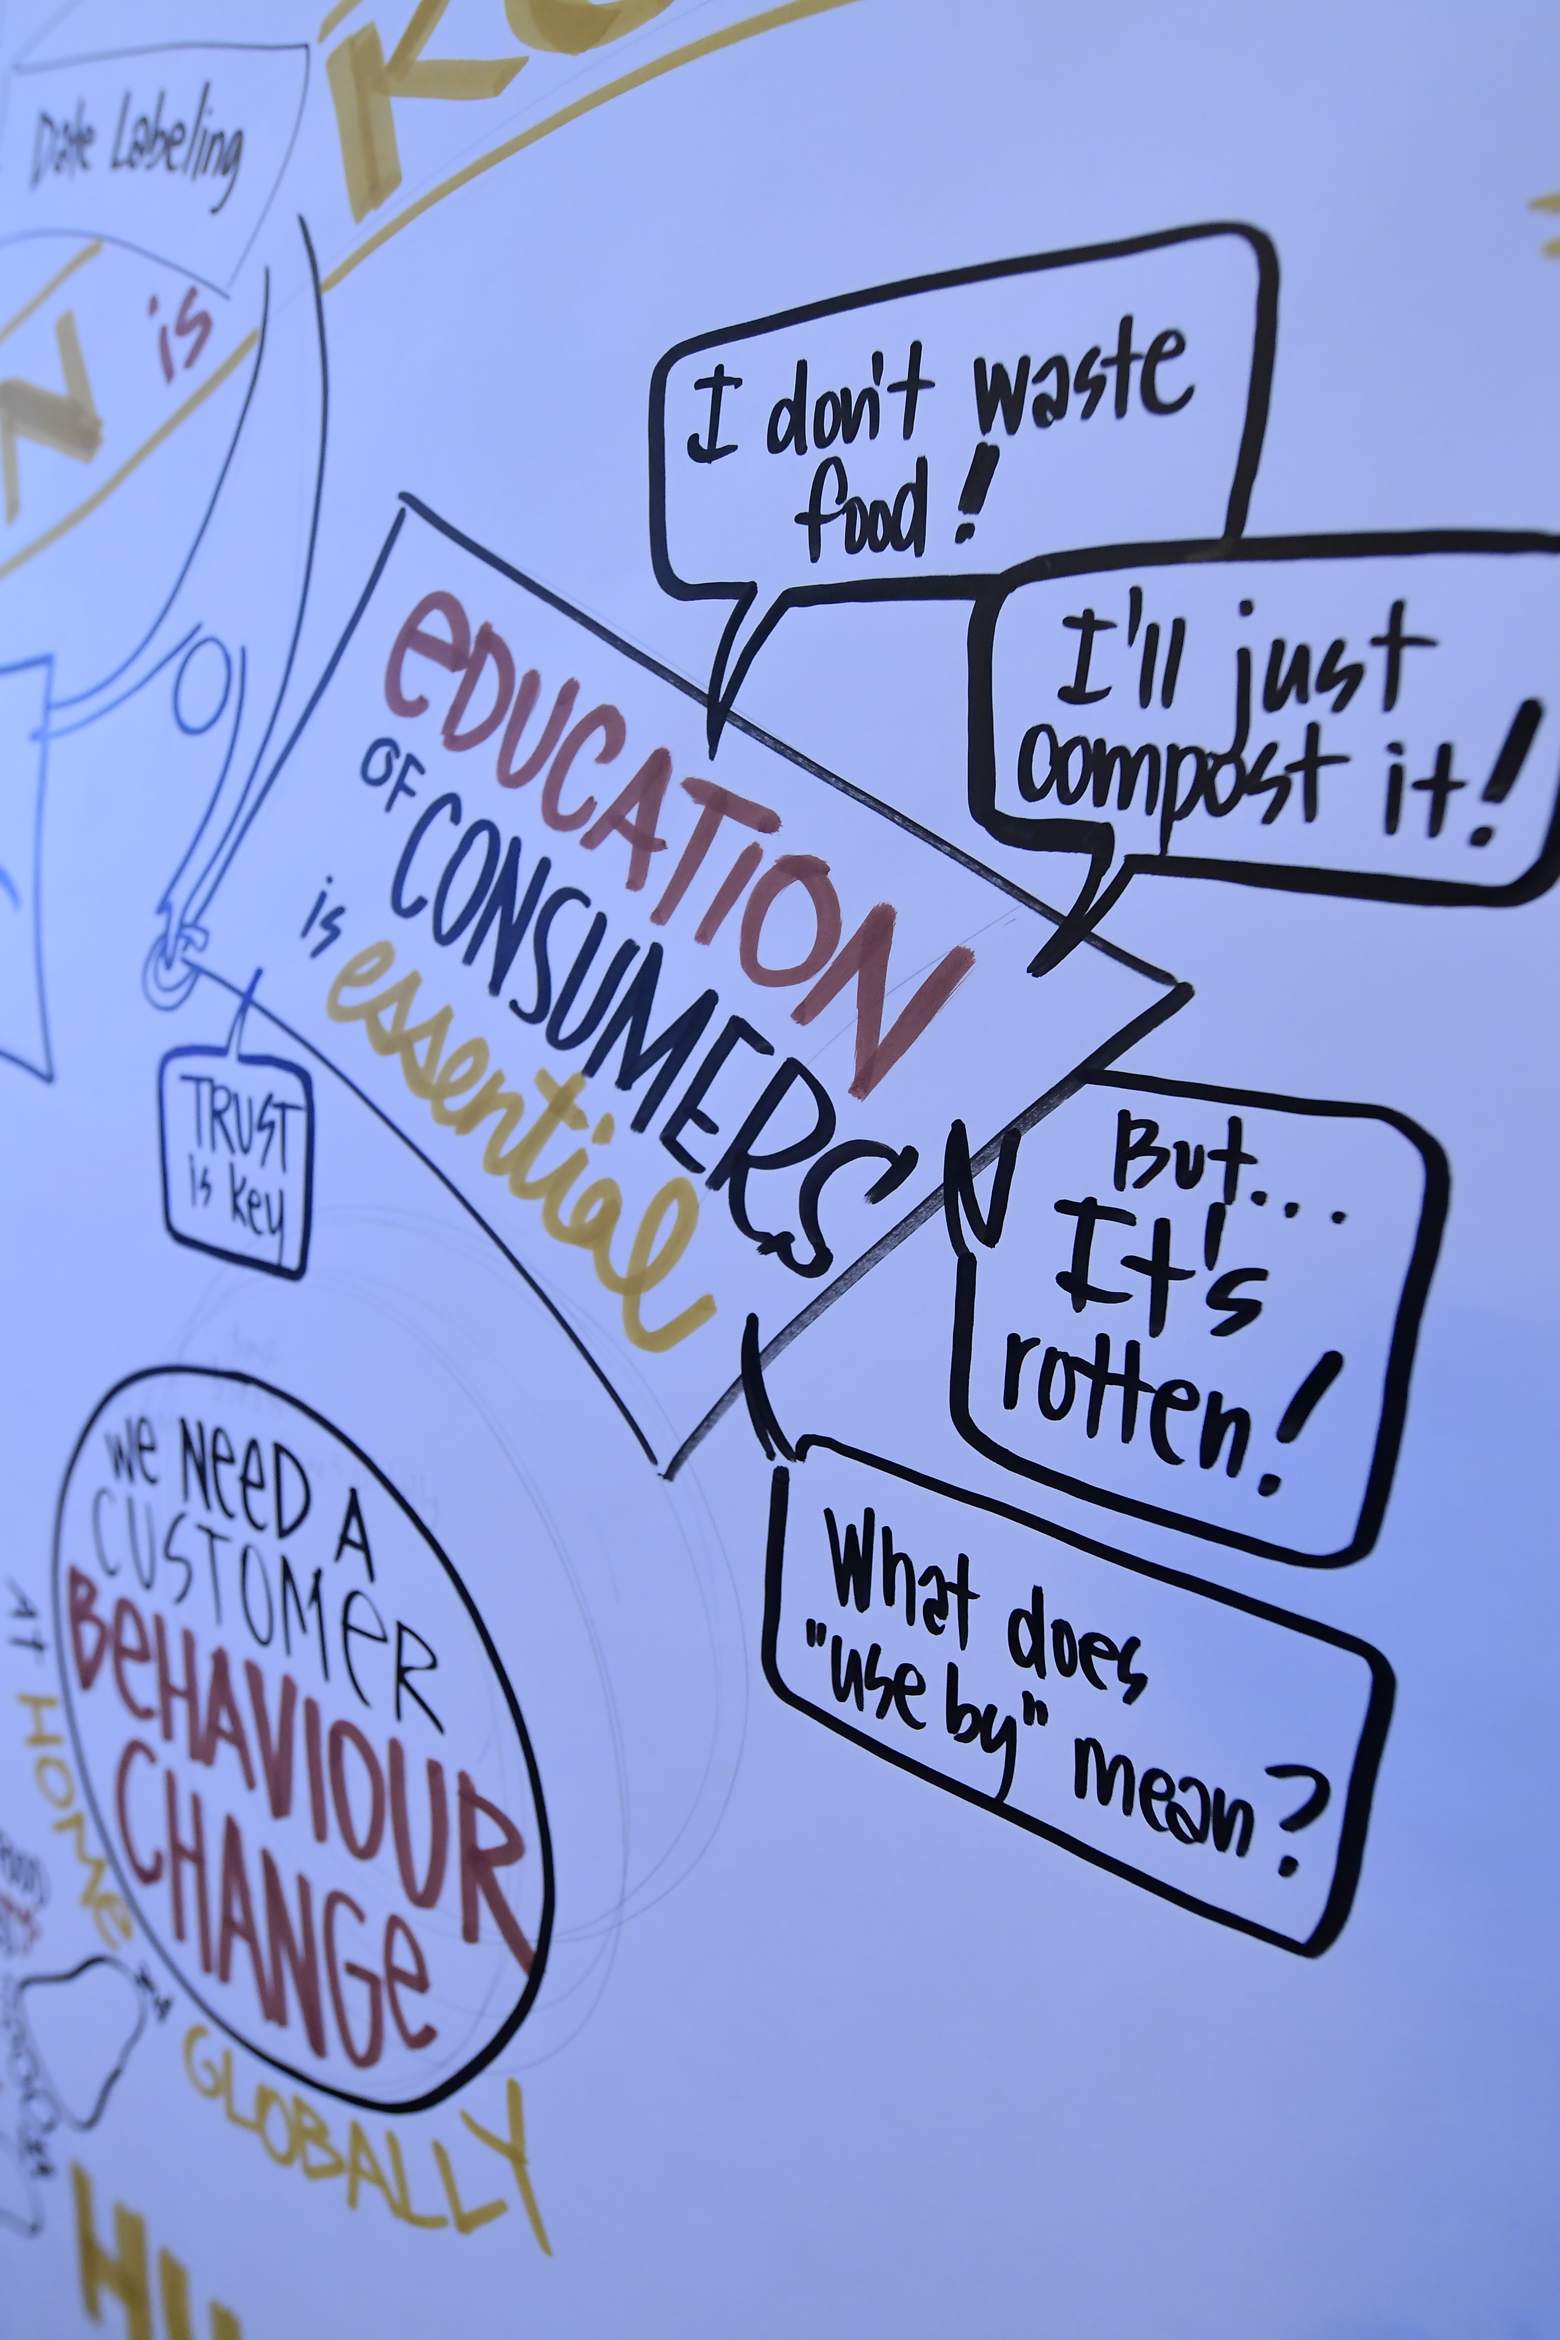 Date Labeling
is
I don't waste
food!
I'll just
compost it!
EDUCATION
OF CONSUMERS
is essential
TRUST
is key
But...
It's
rotten!
What does
"use by" mean?
WE NEED A
CUSTOMER
BEHAVIOUR
CHANGE
AT HOME
GLOBALLY